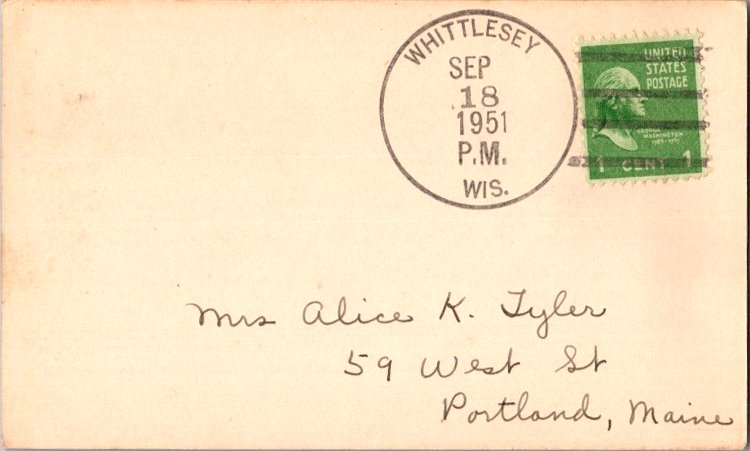 WHITTLESEY
SEP
18
1951
P.M.
WIS.
UNITED
STATES
POSTAGE
GEORGE
WASHINGTON
1789-1797
1 CENT 1
Mrs Alice K. Tyler
59 West St
Portland, Maine